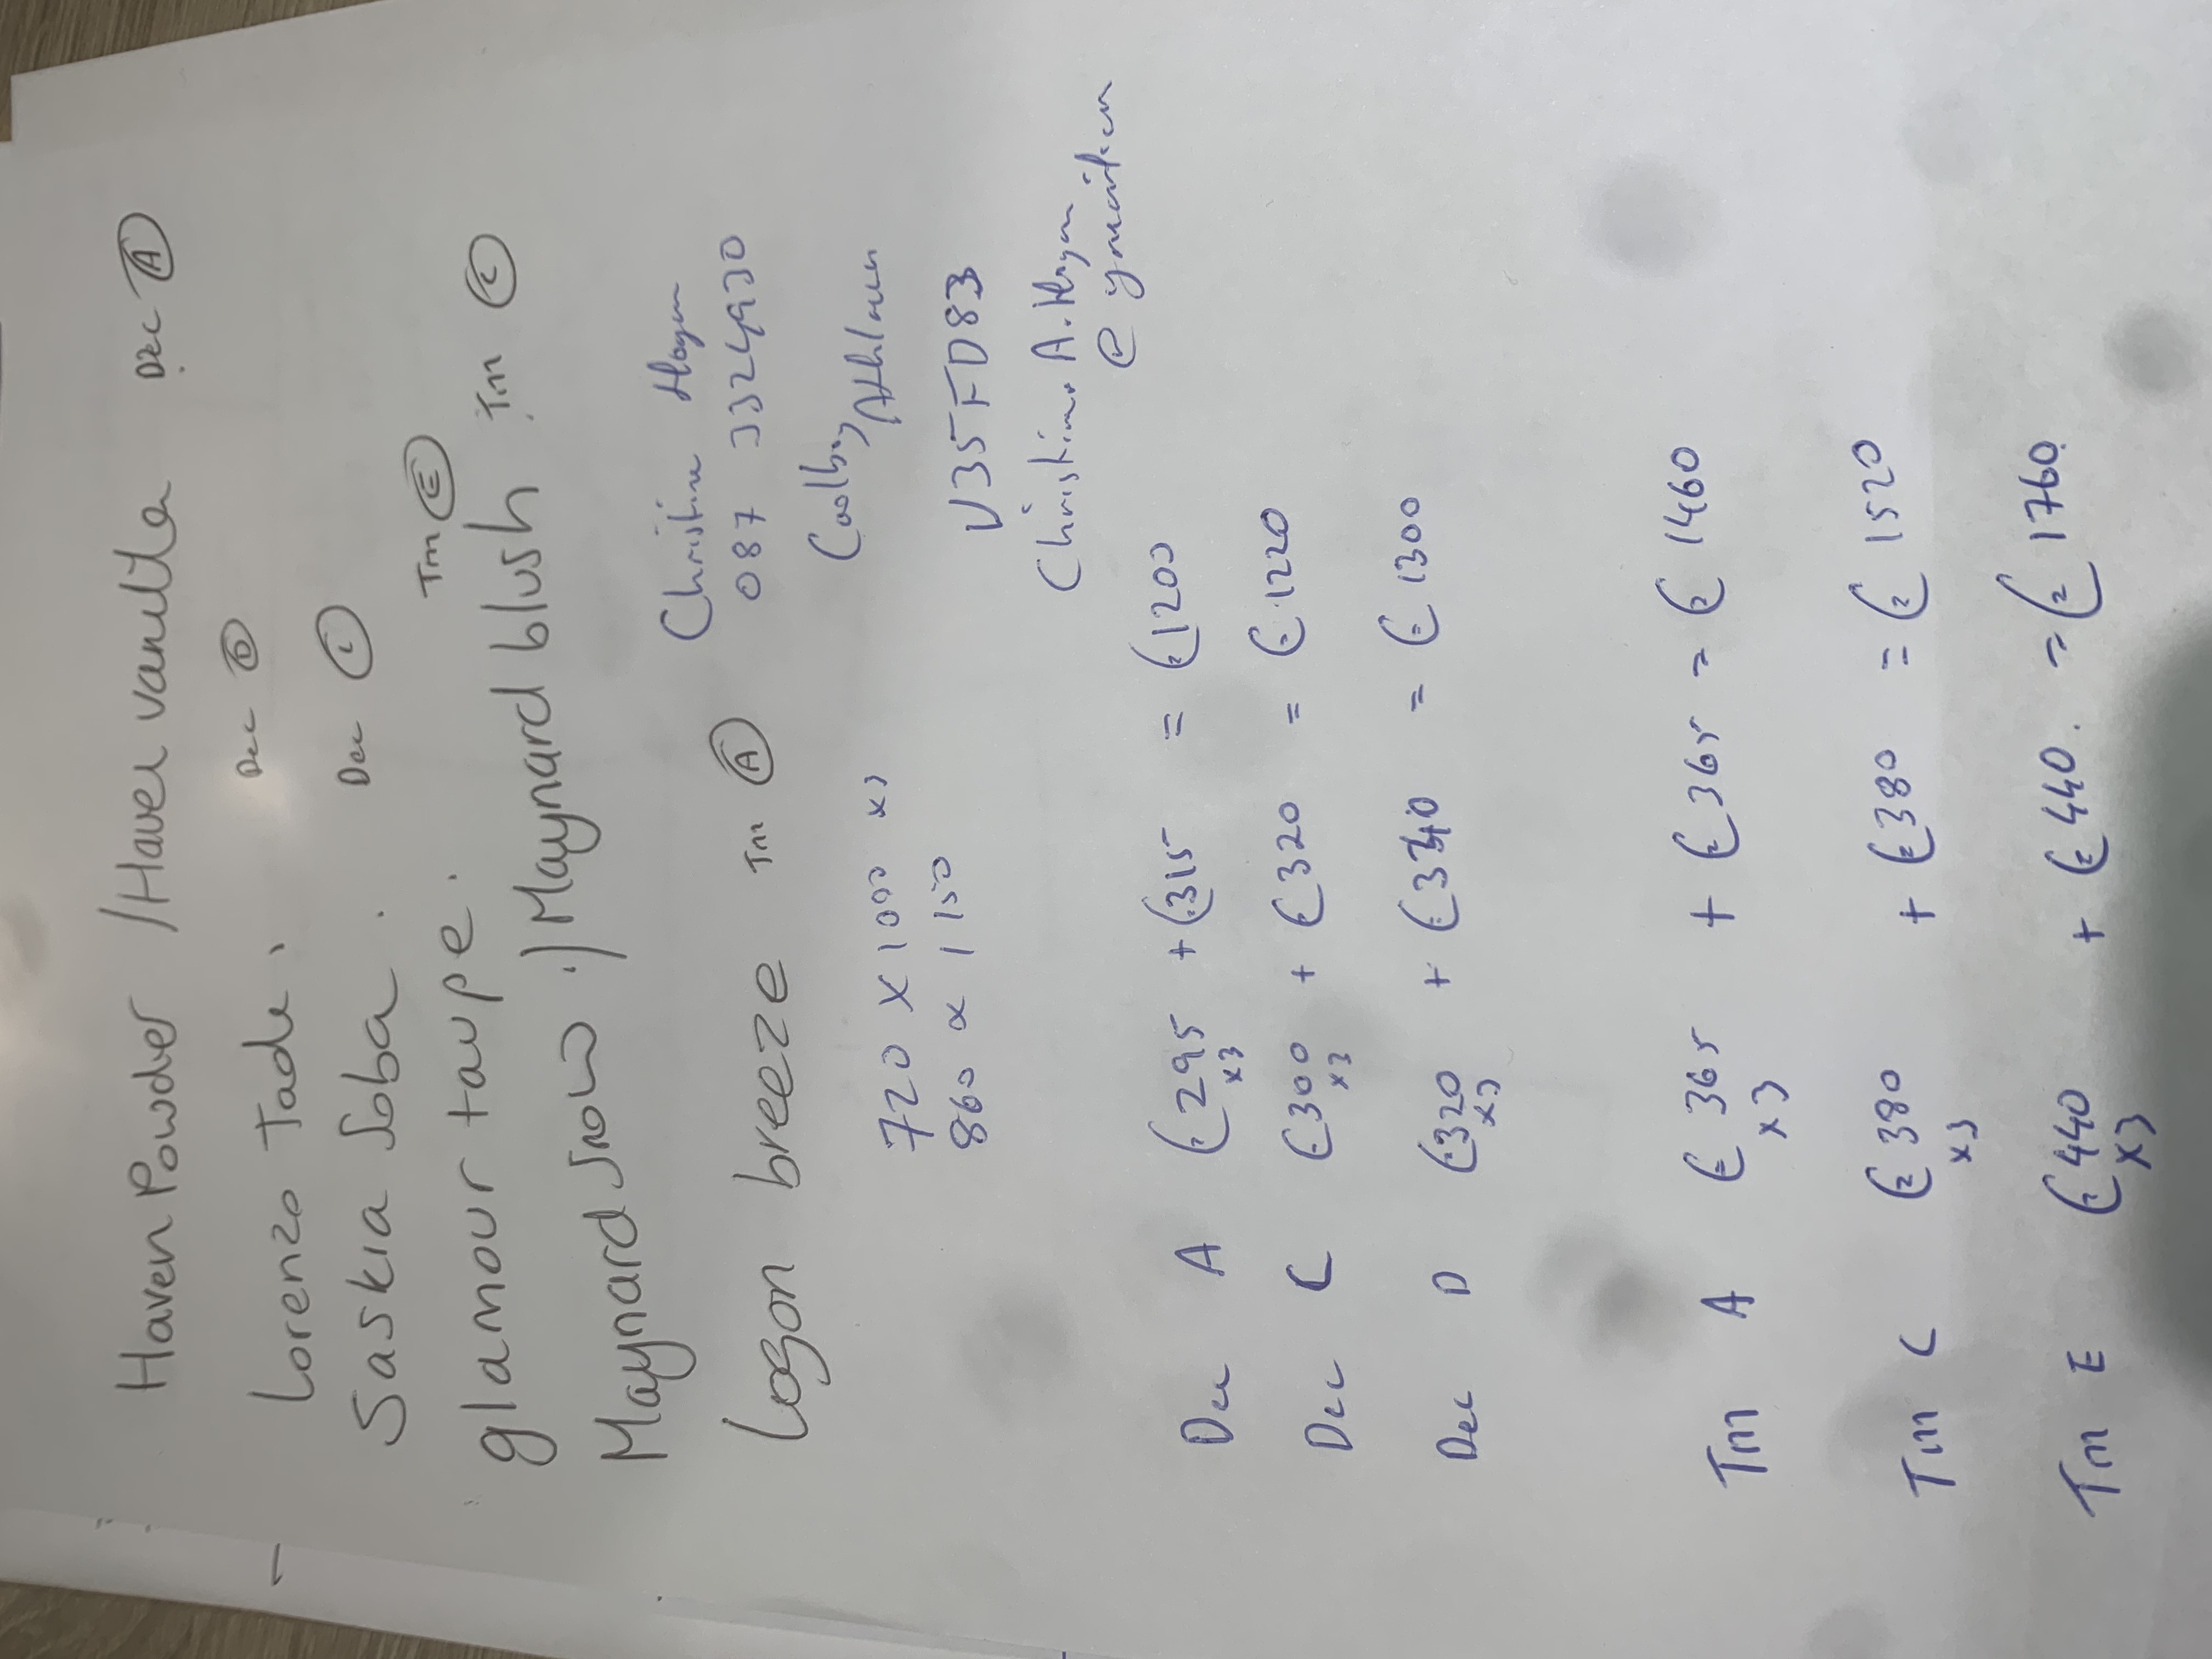 Haven Powder / Haven vanilla Dec A
Lorenzo Jade. Dec D
Saskia Soba. Dec C
glamour taupe. Tm E
Maynard Snow. / Maynard blush Tm C
Logan breeze Tm A
Christine Hogan
087 3324930
Athlone
720 x 1000 x3
860 x 1150
N35FD83
Christine.A.Hogan
@
Dec A €295 x3 + €315 = €1200
Dec C €300 x3 + €320 = €1220
Dec D €320 x3 + €340 = €1300
Tm A €365 x3 + €365 = €1460
Tm C €380 x3 + €380 = €1520
Tm E €440 x3 + €440. = €1760.